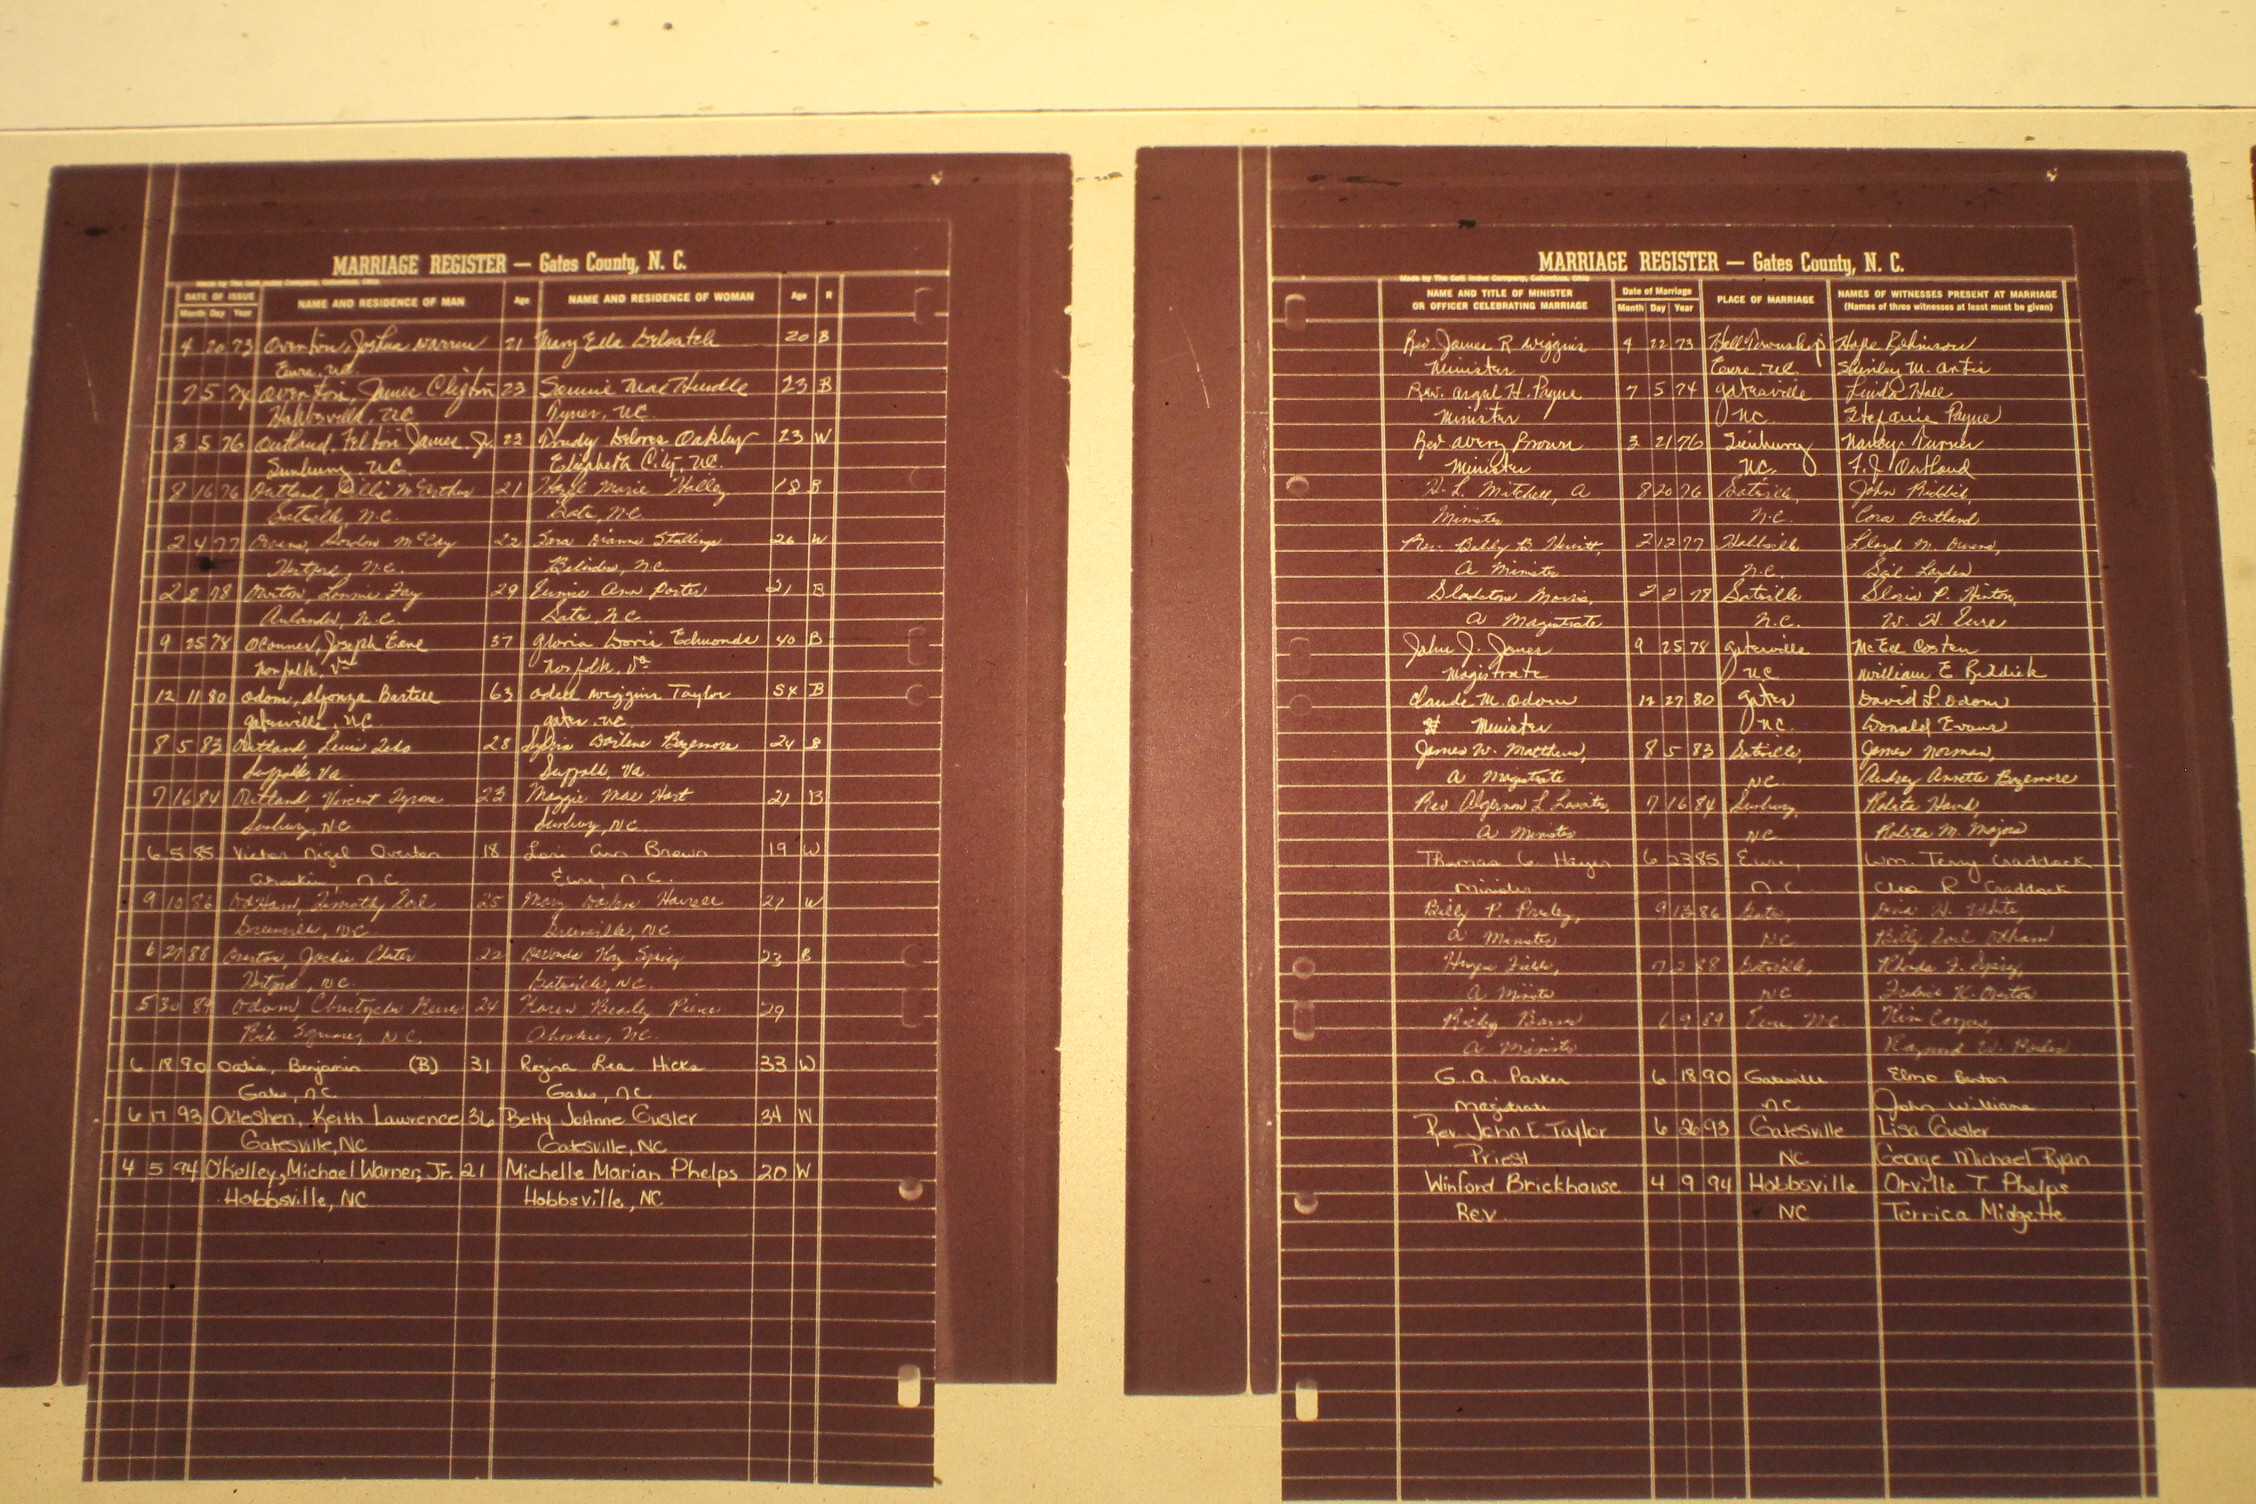 MARRIAGE REGISTER — Gates County, N. C.
Made by The Cott Index Company, Columbus, Ohio
DATE OF ISSUE NAME AND RESIDENCE OF MAN Age NAME AND RESIDENCE OF WOMAN Age R
Month Day Year
4 20 73 Overton, Joshua Warren 21 Mary Ella 20 B
Eure, NC
7 5 74 Overton, James Clifton 23 Sammie Mae Hurdle 23 B
Hobbsville, NC Tyner, NC
3 5 76 Outland, Felton James Jr. 22 Delores Oakley 23 W
Sunbury, NC. Elizabeth City, NC.
8 16 76 Outland, McArthur 21 Hazel Marie Holley 18 B
Gatesville, N.C. Gates, N.C.
2 4 77 Owens, McCoy 22 Sara Dianne Stallings 26 W
Hertford, N.C. Belvidere, N.C.
2 2 78 Overton, Lonnie Fay 29 Eunice Ann Porter 21 B
Aulander, N.C. Gates, N.C.
9 25 78 OConner, Joseph Earl 37 Gloria Doris Edmonds 40 B
Norfolk, Va Norfolk, Va
12 11 80 Odom, Alfonza 63 Odell Wiggins Taylor 54 B
Gatesville, NC Gates, NC
8 5 83 Outland, Lewis 28 Sylvia Darlene Bazemore 24 B
Suffolk, Va. Suffolk, Va.
7 16 84 Outland, Vincent Tyrone 23 Maggie Mae Hart 21 B
Sunbury, NC Sunbury, NC
6 5 85 Victor Nigel Overton 18 Lori Ann Brown 19 W
N.C. Eure, N.C.
9 10 86 Odham, Timothy Earl 25 Mary Darlene Harrell 27 W
Greenville, N.C. Greenville, NC
6 27 88 Overton, Jackie 22 Kay Spivey 23 B
Hertford, N.C. Gatesville, N.C.
5 30 89 Odom, Christopher 24 Karen Beasley Pierce 29
N.C. Ahoskie, NC.
6 18 90 Benjamin (B) 31 Regina Lea Hicks 33 W
Gates, NC. Gates, NC
6 17 93 Okleshen, Keith Lawrence 36 Betty JoAnne Gusler 34 W
Gatesville, NC Gatesville, NC
4 5 94 O'Kelley, Michael Warner, Jr. 21 Michelle Marian Phelps 20 W
Hobbsville, NC Hobbsville, NC
MARRIAGE REGISTER — Gates County, N. C.
Made by The Cott Index Company, Columbus, Ohio
NAME AND TITLE OF MINISTER Date of Marriage PLACE OF MARRIAGE NAMES OF WITNESSES PRESENT AT MARRIAGE
OR OFFICER CELEBRATING MARRIAGE Month Day Year (Names of three witnesses at least must be given)
Rev. James R Wiggins 4 22 73 Hall Township Hope Robinson
Minister Eure, NC Shirley M. Artis
Rev. Argal H. Payne 7 5 74 Gatesville Linda Hall
Minister NC Stefanie Payne
Rev Avery Brown 3 21 76 Sunbury Nancy Turner
Minister NC. F. J. Outland
H. L. Mitchell, A 8 20 76 Gatesville, John Riddick,
Minister N.C. Cora Outland
Rev. Bobby B. 2 12 77 Hobbsville Lloyd M. Owens,
A Minister N.C. Gail Layden
Gladstone Morris, 2 2 78 Gatesville Gloria P. Hinton,
A Magistrate N.C. W. H. Eure
John J. Jones 9 25 78 Gatesville McEll Costen
Magistrate NC William E Riddick
Claude M. Odom 12 27 80 Gates David L. Odom
Minister NC. Donald Evans
James W. Matthews, 8 5 83 Gatesville, James Norman,
A Magistrate NC. Audrey Annette Bazemore
Rev Algernon L Lassiter, 7 16 84 Sunbury,
A Minister NC
Thomas G. 6 23 85 Eure, Wm. Terry Craddock
Minister N.C. R Craddock
Billy P. Presley, 9 13 86 Gates, H. White,
A Minister NC Billy Earl Odham
Fields, 7 2 88 Gatesville, Rhonda F. Spivey,
A Minister NC
Ricky 6 9 89 Eure, N.C. Kim
A Minister Raymond W.
G. A. Parker 6 18 90 Gatesville Elmo
Magistrate NC John Williams
Rev. John E. Taylor 6 26 93 Gatesville Lisa Gusler
Priest NC George Michael Ryan
Winford Brickhouse 4 9 94 Hobbsville Orville T. Phelps
Rev. NC Terrica Midgette